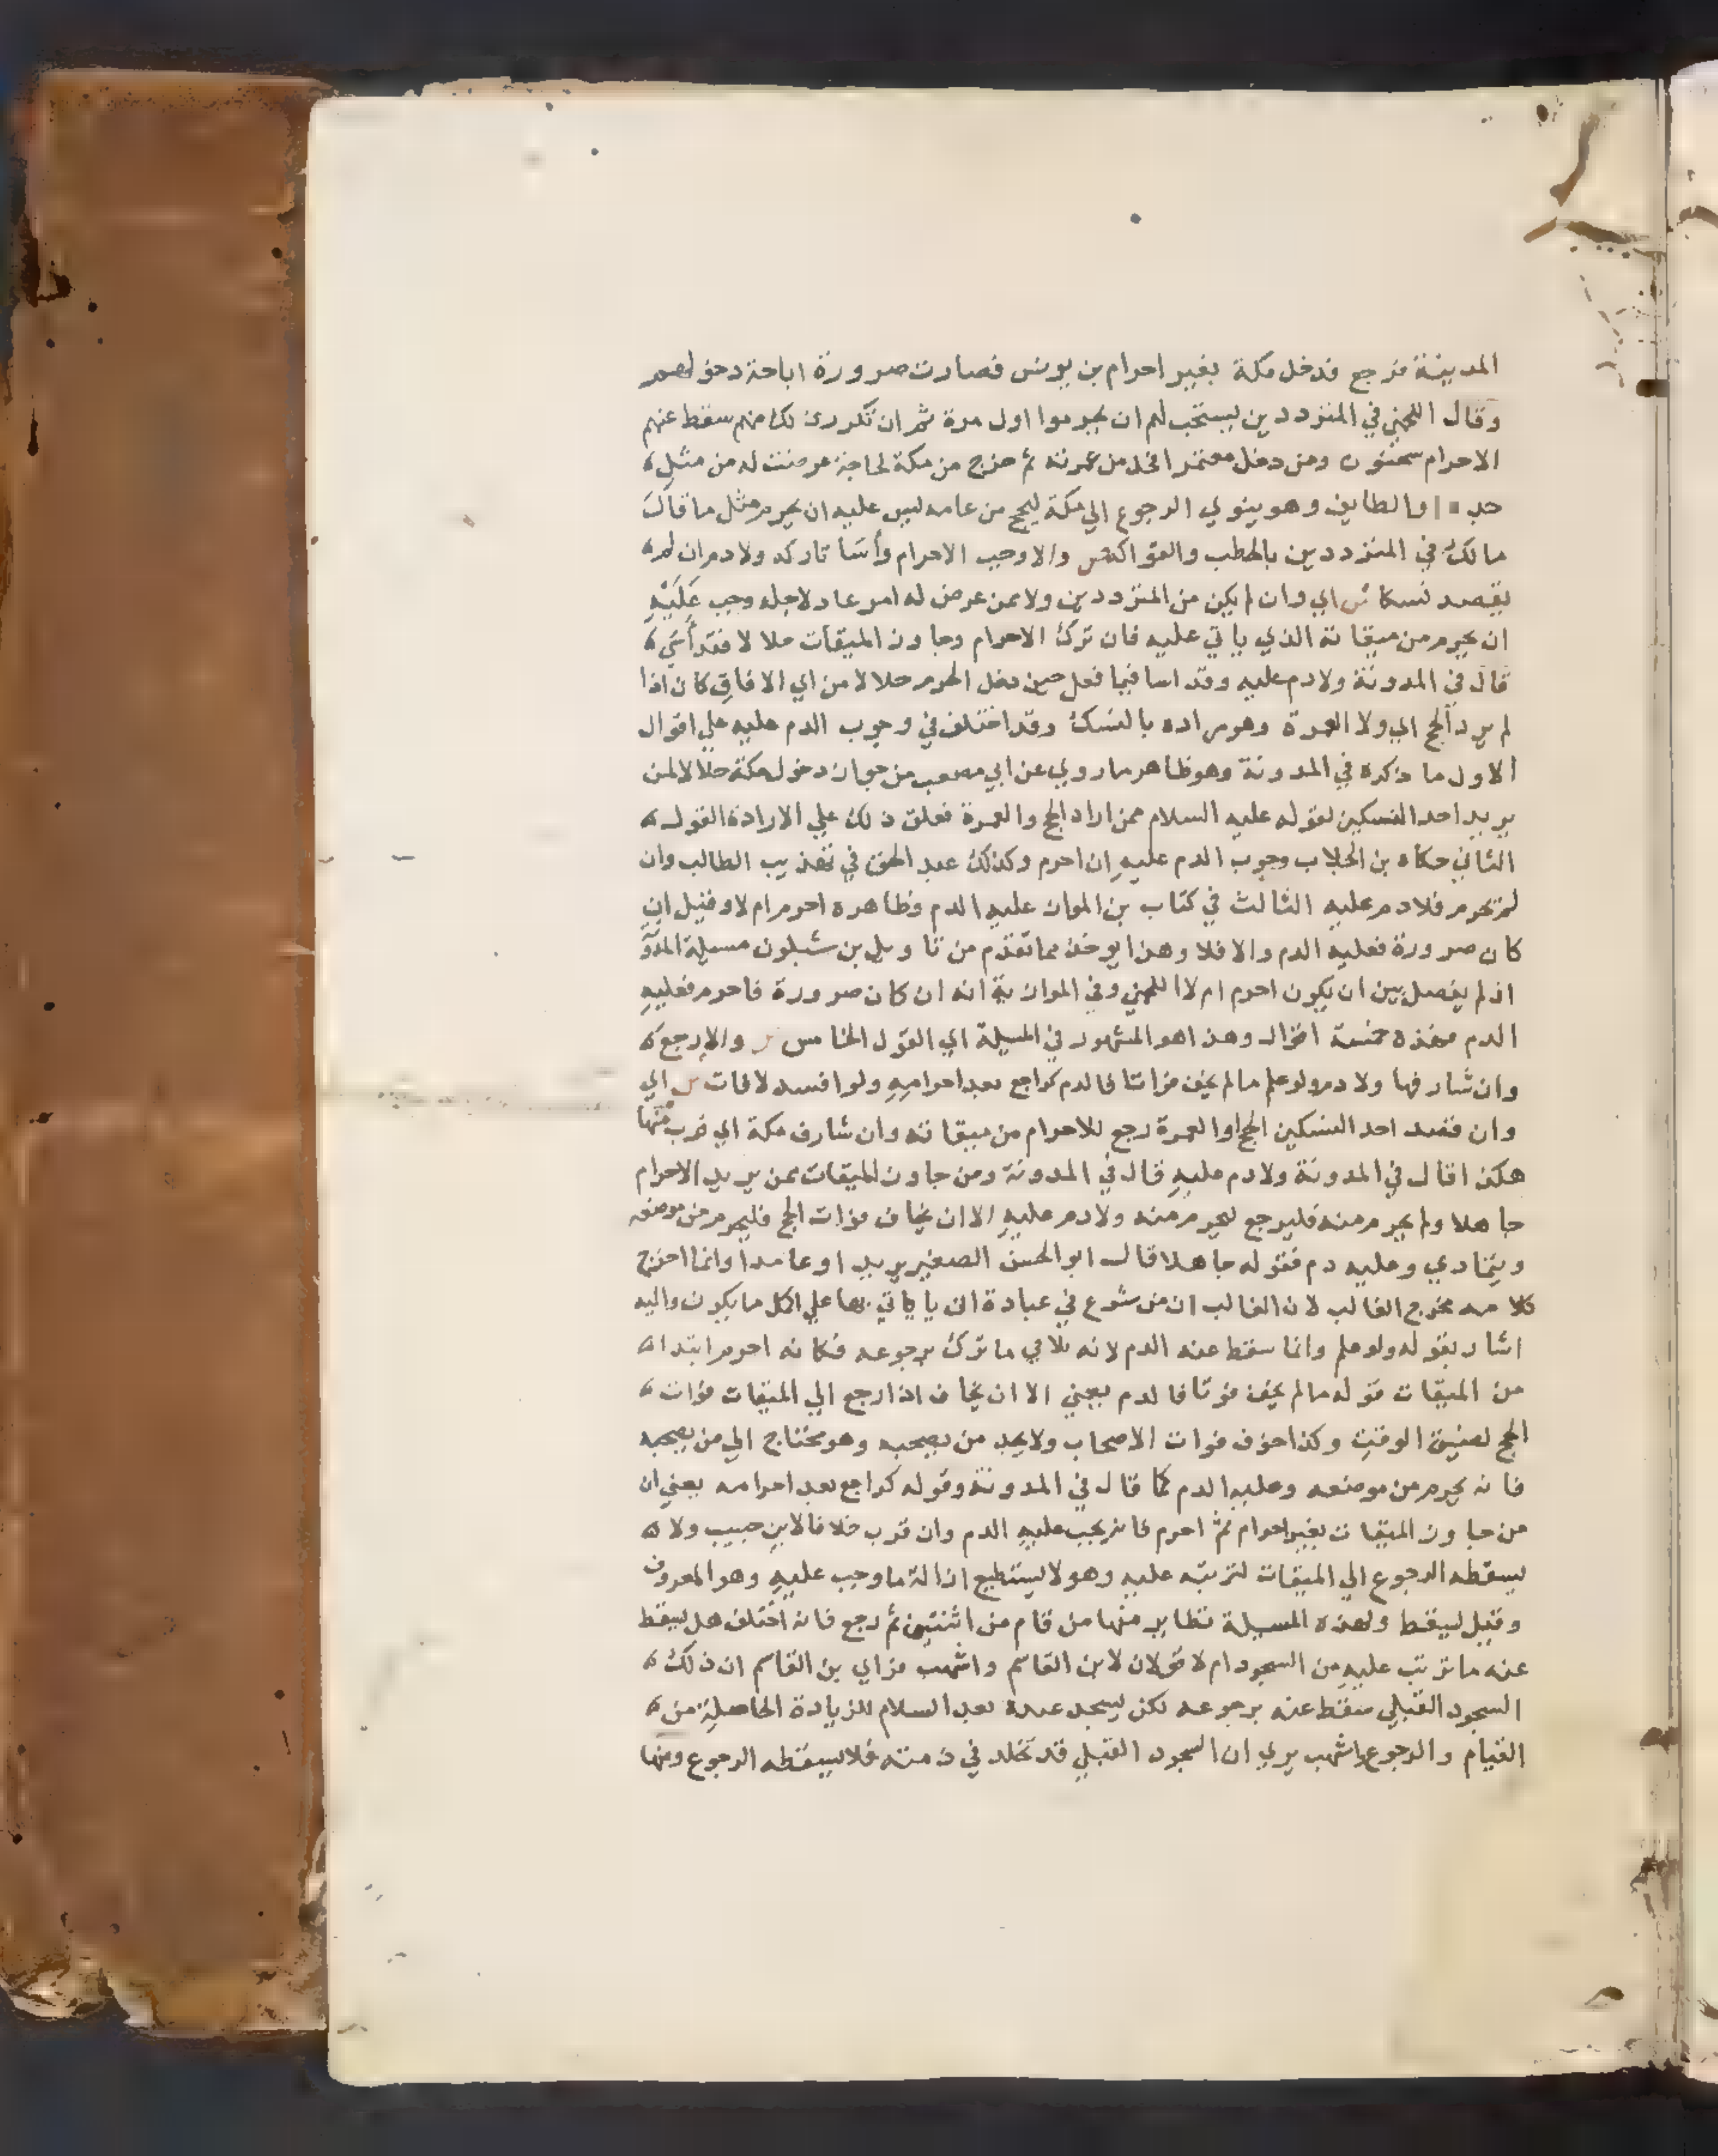 المدينة فرجع فدخل مكة بغير احرام بن يونس فصارت صرورة اباحة دخولهم
وقال اللخمي في المترددين يستحب لهم ان يحرموا اول مرة ثم ان تكرر ذلك منهم سقط عنهم
الاحرام سحنون ومن دخل معتمرا فحل من عمرته ثم خرج من مكة لحاجة عرضت له من مثل
جدة والطايف وهو ينوي الرجوع الي مكة ليحج من عامه ليس عليه ان يحرم مثل ما قال
مالك في المترددين بالحطب والفواكه ص والا وجب الاحرام وأسا تاركه ولا دم ان لم
يقصد نسكا ش اي وان لم يكن من المترددين ولا ممن عرض له امر عاد لاجله وجب عليه
ان يحرم من ميقاته الذي ياتي عليه فان ترك الاحرام وجاوز الميقات حلالا فقد أسي
قال في المدونة ولا دم عليه وقد اسا فيما فعل حين دخل الحرم حلالا من اي الافاق كان اذا
لم يرد الحج اي ولا العمرة وهو مراده بالنسك وقد اختلف في وجوب الدم عليه علي اقوال
الاول ما ذكره في المدونة وهو ظاهر ما روي عن ابي مصعب من جواز دخول مكة حلالا لمن
يريد احد النسكين لقوله عليه السلام ممن اراد الحج والعمرة فعلق ذلك علي الارادة القول
الثاني حكاه بن الجلاب وجوب الدم عليه ان احرم وكذلك عبد الحق في تهذيب الطالب وان
لم يحرم فلا دم عليه الثالث في كتاب بن المواز عليه الدم وظاهره احرم ام لا وقيل ان
كان صرورة فعليه الدم والا فلا وهذا يوخذ مما تقدم من تاويل بن شبلون مسيلة المدو
اذ لم يفصل بين ان يكون احرم ام لا اللخمي وفي الموازية انه ان كان صرورة فاحرم فعليه
الدم فهذه خمسة اقوال وهذا هو المشهور في المسيلة اي القول الخامس ص والا رجع
وان شارفها ولا دم ولو علم ما لم يخف فواتا فالدم كراجع بعد احرامه ولو افسد لا فات ش اي
وان قصد احد النسكين الحج او العمرة رجع للاحرام من ميقاته وان شارف مكة اي قرب منها
هكذا قال في المدونة ولا دم عليه قال في المدونة ومن جاوز الميقات ممن يريد الاحرام
جاهلا ولم يحرم منه فليرجع ليحرم منه ولا دم عليه الا ان يخاف فوات الحج فليحرم من موضعه
ويتمادي وعليه دم فقوله جاهلا قال ابو الحسن الصغير يريد او عامدا وانما اخرج
كلامه مخرج الغالب لان الغالب ان من شرع في عبادة ان ياتي بها علي اكمل ما يكون واليه
اشار بقوله ولو علم وانما سقط عنه الدم لانه تلافي ما ترك برجوعه فكانه احرم ابتدا
من الميقات قوله ما لم يخف فوتا فالدم يعني الا ان يخاف اذا رجع الي الميقات فوات
الحج لضيق الوقت وكذا خوف فوات الاصحاب ولا يجد من يصحبه وهو محتاج الي من يصحبه
فانه يحرم من موضعه وعليه الدم كما قال في المدونة وقوله كراجع بعد احرامه يعني ان
من جاوز الميقات بغير احرام ثم احرم فانه يجب عليه الدم وان قرب خلافا لابن حبيب ولا
يسقطه الرجوع الي الميقات لترتبه عليه وهو لا يستطيع ازالة ما وجب عليه وهو المعروف
وقيل يسقط ولهذه المسيلة نظاير منها من قام من اثنتين ثم رجع فانه اختلف هل يسقط
عنه ما ترتب عليه من السجود ام لا قولان لابن القاسم واشهب فراي بن القاسم ان ذلك
السجود القبلي سقط عنه برجوعه لكن يسجد عنده بعد السلام للزيادة الحاصلة من
القيام والرجوع واشهب يري ان السجود القبلي قد تخلد في ذمته فلا يسقطه الرجوع ومنها